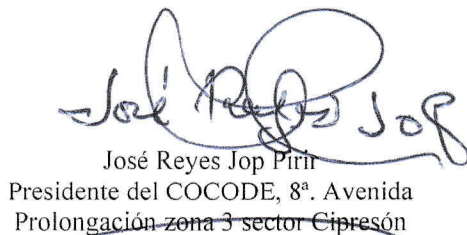 José Reyes Jop
José Reyes Jop Pirir
Presidente del COCODE, 8ª. Avenida
Prolongación zona 3 sector Cipresón